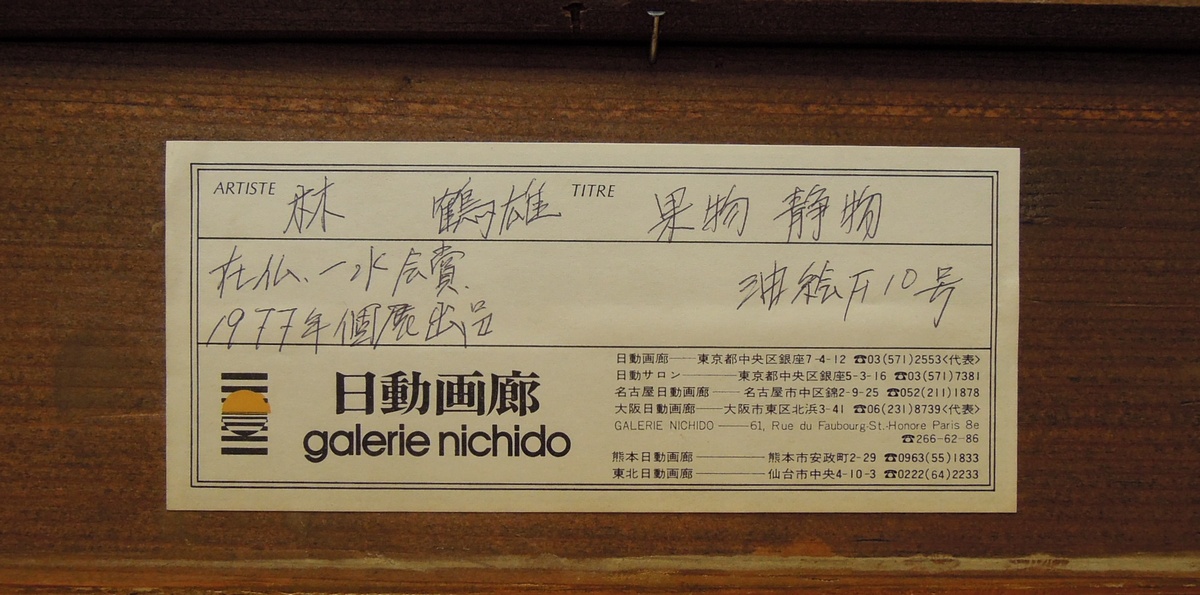 ARTISTE 林 鶴雄 TITRE 果物 静物
在仏、一水会賞、
1977年個展出品
油絵 F10号
日動画廊
galerie nichido
日動画廊――東京都中央区銀座7-4-12 ☎03(571)2553<代表>
日動サロン――東京都中央区銀座5-3-16 ☎03(571)7381
名古屋日動画廊――名古屋市中区錦2-9-25 ☎052(211)1878
大阪日動画廊――大阪市東区北浜3-41 ☎06(231)8739<代表>
GALERIE NICHIDO――61, Rue du Faubourg-St.-Honore Paris 8e
☎266-62-86
熊本日動画廊――熊本市安政町2-29 ☎0963(55)1833
東北日動画廊――仙台市中央4-10-3 ☎0222(64)2233